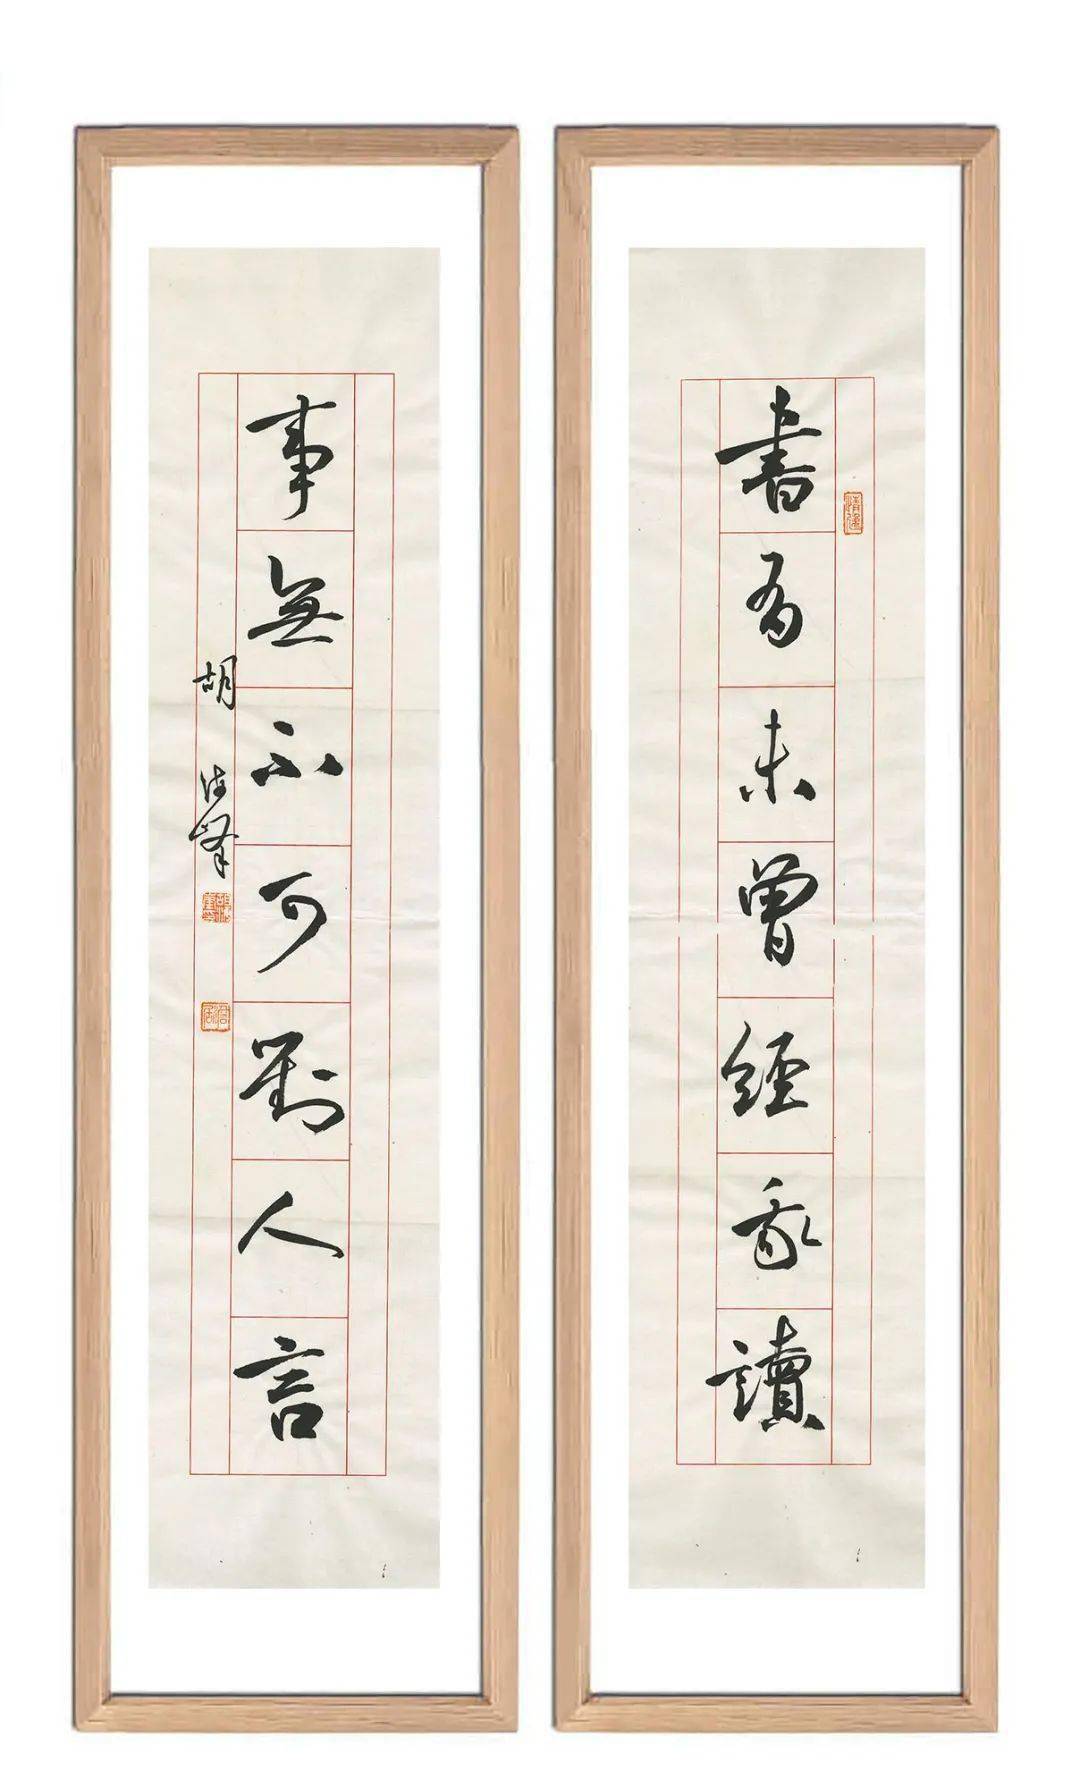 書有未曾經我讀
事無不可對人言
胡
峰